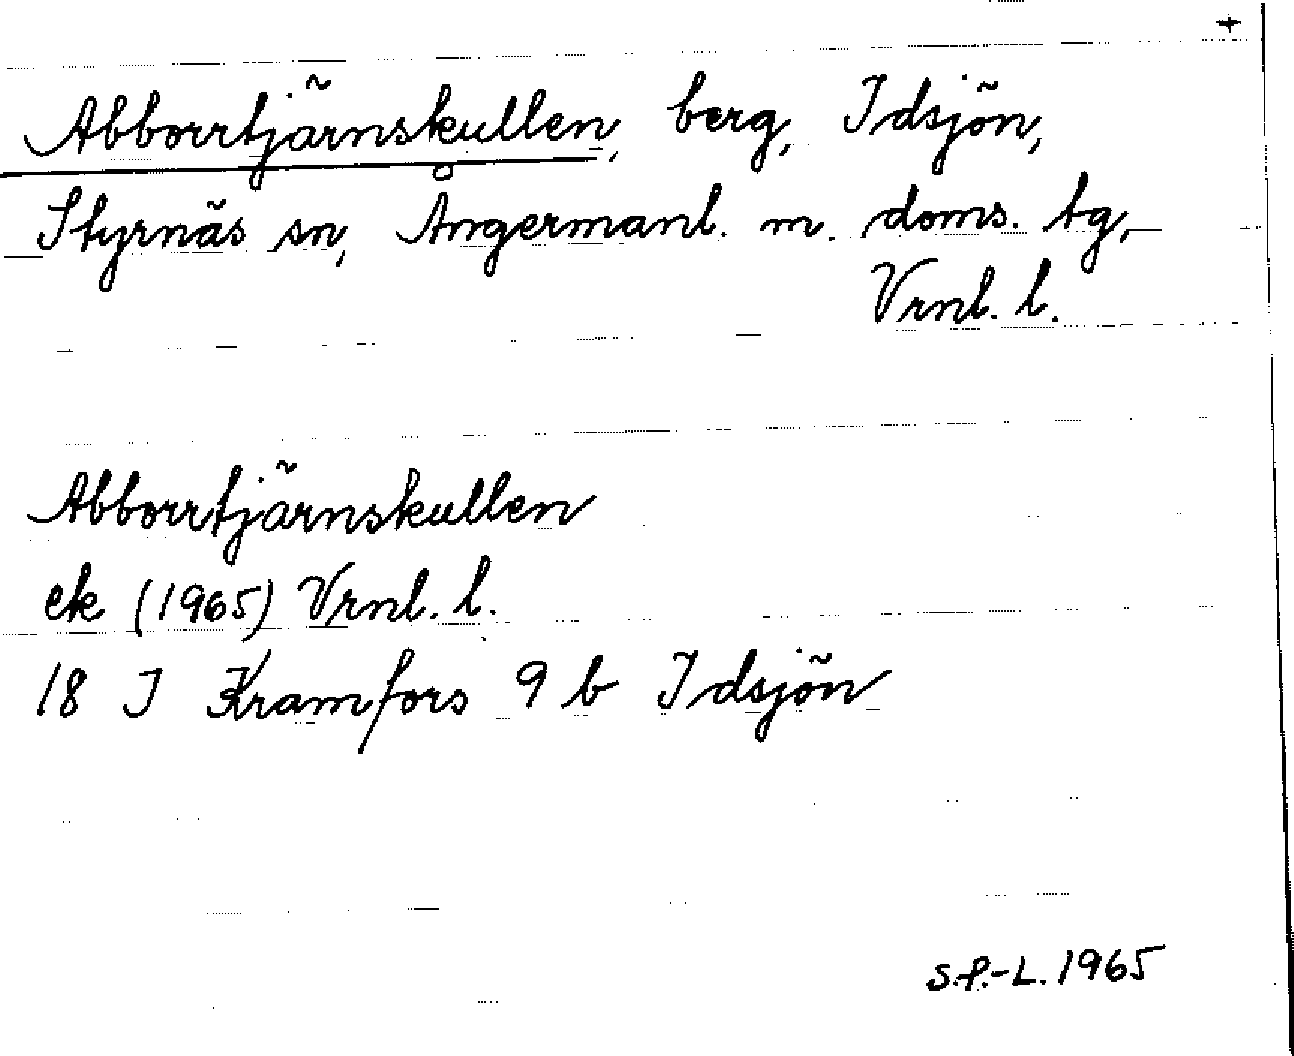 +
Abborrtjärnskullen, berg, Idsjön,
Styrnäs sn, Ångermanl. m. doms. tg,
Vrnl. l.
Abborrtjärnskullen
ek (1965) Vrnl. l.
18 I Kramfors 9 b Idsjön
S.P.-L. 1965